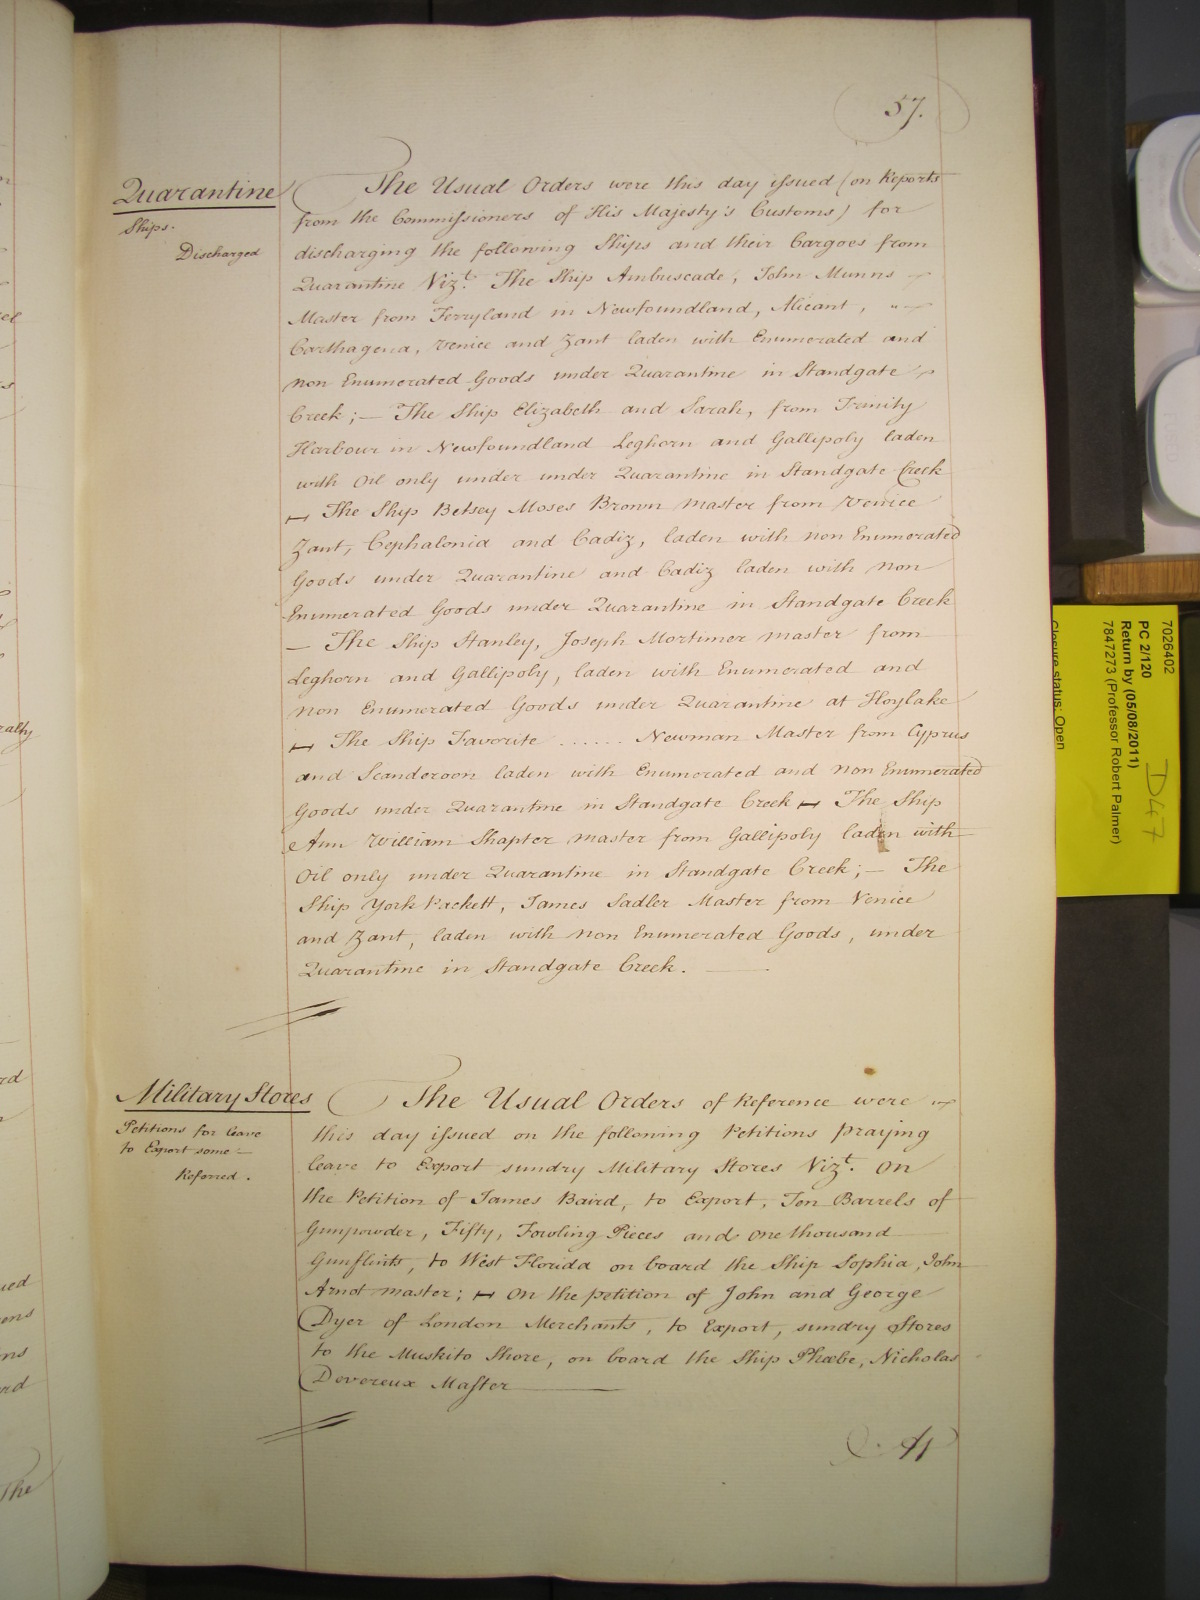 57.
Quarantine
Ships.
Discharged
The Usual Orders were this day issued (on Reports
from the Commissioners of His Majesty's Customs) for
discharging the following Ships and their Cargoes from
Quarantine Vizt. The Ship Ambuscade, John Munns
Master from Ferryland in Newfoundland, Alicant,
Carthagena, Venice and Zant laden with Enumerated and
non Enumerated Goods under Quarantine in Standgate
Creek; — The Ship Elizabeth and Sarah, from Trinity
Harbour in Newfoundland Leghorn and Gallipoly laden
with Oil only under under Quarantine in Standgate Creek
— The Ship Betsey Moses Brown Master from Venice
Zant, Cephalonia and Cadiz, laden with non Enumerated
Goods under Quarantine and Cadiz laden with non
Enumerated Goods under Quarantine in Standgate Creek
— The Ship Stanley, Joseph Mortimer Master from
Leghorn and Gallipoly, laden with Enumerated and
non Enumerated Goods under Quarantine at Hoylake
— The Ship Favorite ...... Newman Master from Cyprus
and Scanderoon laden with Enumerated and non Enumerated
Goods under Quarantine in Standgate Creek — The Ship
Ann William Shapter Master from Gallipoly laden with
Oil only under Quarantine in Standgate Creek; — The
Ship York Packett, James Sadler Master from Venice
and Zant, laden with non Enumerated Goods, under
Quarantine in Standgate Creek. —
Military Stores
Petitions for leave
to Export some —
Referred.
The Usual Orders of Reference were
this day issued on the following Petitions praying
leave to Export sundry Military Stores Vizt. On
the Petition of James Baird, to Export, Ten Barrels of
Gunpowder, Fifty, Fowling Pieces and one thousand
Gunflints, to West Florida on board the Ship Sophia, John
Arnot Master; — On the petition of John and George
Dyer of London Merchants, to Export, sundry Stores
to the Muskito Shore, on board the Ship Phœbe, Nicholas
Devereux Master —
At
7026402
PC 2/120
Return by (05/08/2011)
7847273 (Professor Robert Palmer)
Closure status: Open
D47